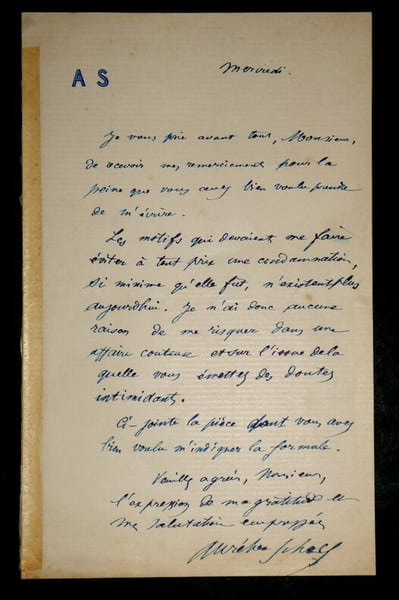 A S
Mercredi.
Je vous prie avant tout, Monsieur,
de recevoir mes remerciements pour la
peine que vous avez bien voulu prendre
de m'écrire.
Les motifs qui devaient me faire
éviter à tout prix une condamnation,
si minime qu'elle fut, n'existent plus
aujourd'hui. Je n'ai donc aucune
raison de me risquer dans une
affaire couteuse et sur l'issue de la
quelle vous émettez des doutes
intimidants.
Ci-jointe la pièce dont vous avez
bien voulu m'indiquer la formule.
Veuillez agréer, Monsieur,
l'expression de ma gratitude et
mes salutations empressées
Aurélien Scholl